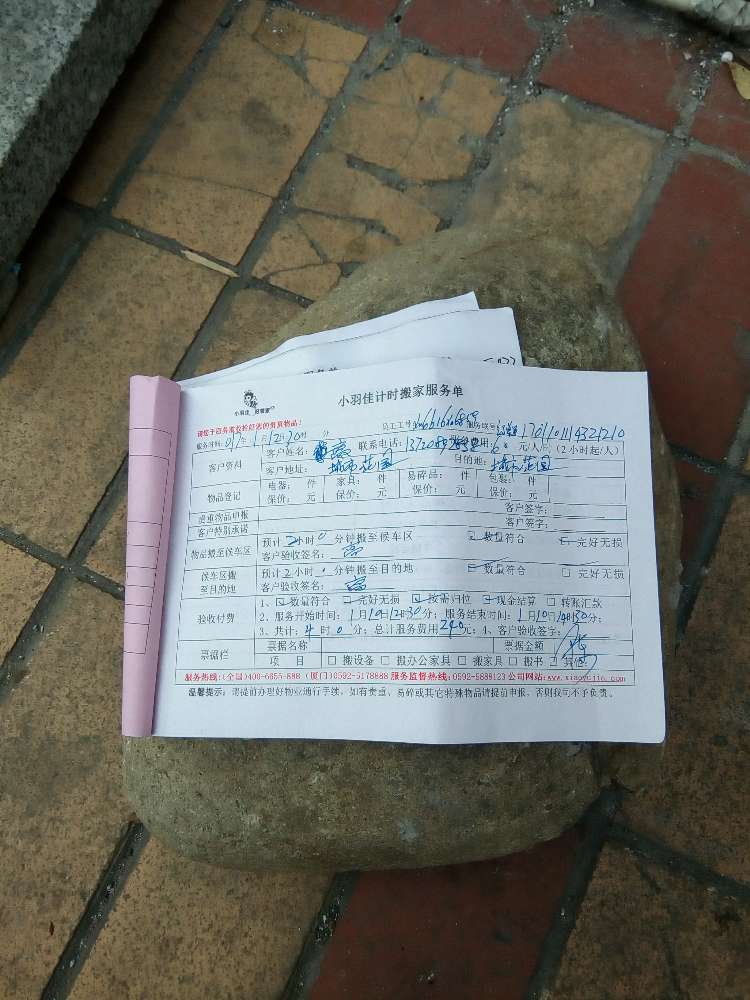 小羽佳计时搬家服务单
小羽佳
员工工号: 服务联号: 1701101114321210
服务时间: 年1月12 30分
客户资料 客户姓名: 联系电话: 费用: 60元/人/ (2小时起/人)
客户地址: 城市花园 目的地: 花园
物品登记 电器: 件 家具: 件 易碎品: 件 包装: 件
保价: 元 保价: 元 保价: 元 保价: 元
贵重物品申报 客户签字:
客户特别承诺 客户签字:
物品搬至候车区 预计2小时0分钟搬至候车区 数量符合 完好无损
客户验收签名:
候车区搬至目的地 预计2小时0分钟搬至目的地 数量符合 完好无损
客户验收签名:
验收付费 1、数量符合 完好无损 按需归位 现金结算 转账汇款
2、服务开始时间: 1月10日12时30分; 服务结束时间: 1月10日14时30分;
3、共计: 4时0分; 总计服务费用240元; 4、客户验收签字:
票据栏 票据名称 票据金额
项 目 搬设备 搬办公家具 搬家具 搬书 其他
服务热线:(全国)400-6655-888 (厦门)0592-5178888 服务监督热线:0592-5888123 公司网站:www.xiaoyu116.com
温馨提示: 请提前办理好物业通行手续, 如有贵重、易碎或其它特殊物品请提前申报, 否则我司不予负责。